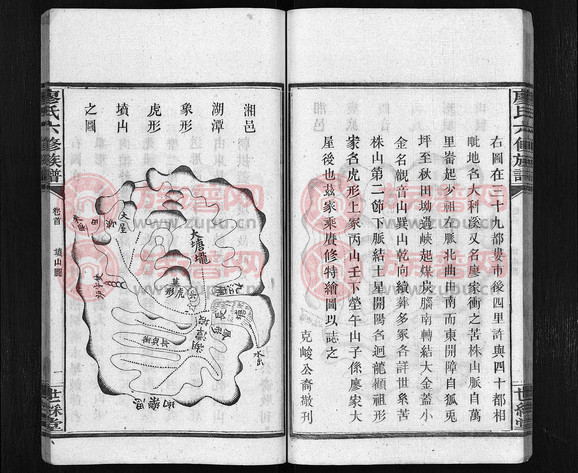 右圖在三十九都婁市後四里許與四十都相
毗地名大利溪又名廖家衝之苦株山脈自萬
里崙起少祖左脈北曲由南而東開障自狐兎
坪至秋田坳過峽起煤炭腦南轉結大金蓋小
金名觀音山巽山乾向繞葬多冢各詳世系苦
株山第二節下脈結土星開陽名迴龍顧祖形
家名虎形上冢丙山壬下塋午山子係廖家大
屋後也茲家乘賡修特繪圖以誌之
克峻公裔撒刊
廖氏六修族譜
世綵堂
廖氏六修族譜
卷首
墳山圖
一
世綵堂
湘邑
湖潭
象形
虎形
墳山
之圖
大屋
大塘壠
虎形
墓
水
族譜网
www.zupu.cn
族譜网
www.zupu.cn